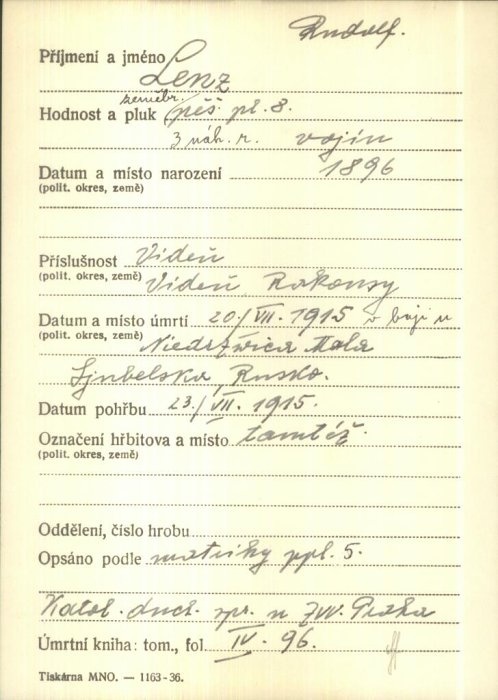 Rudolf.
Příjmení a jméno Lenz
zeměbr.
Hodnost a pluk pěš. pl. 8.
3 náh. r. vojín
Datum a místo narození 1896
(polit. okres, země)
Příslušnost Videň
(polit. okres, země) Videň Rakousy
Datum a místo úmrtí 20/VII. 1915 v boji u
(polit. okres, země) Niedrzwica Mala
Ljubelsko, Rusko.
Datum pohřbu 23/VII. 1915.
Označení hřbitova a místo tamtéž.
(polit. okres, země)
Oddělení, číslo hrobu
Opsáno podle matriky ppl. 5.
Katol. duch. spr. u ZVV. Praha
Úmrtní kniha: tom., fol. IV. 96.
Tiskárna MNO. — 1163-36.